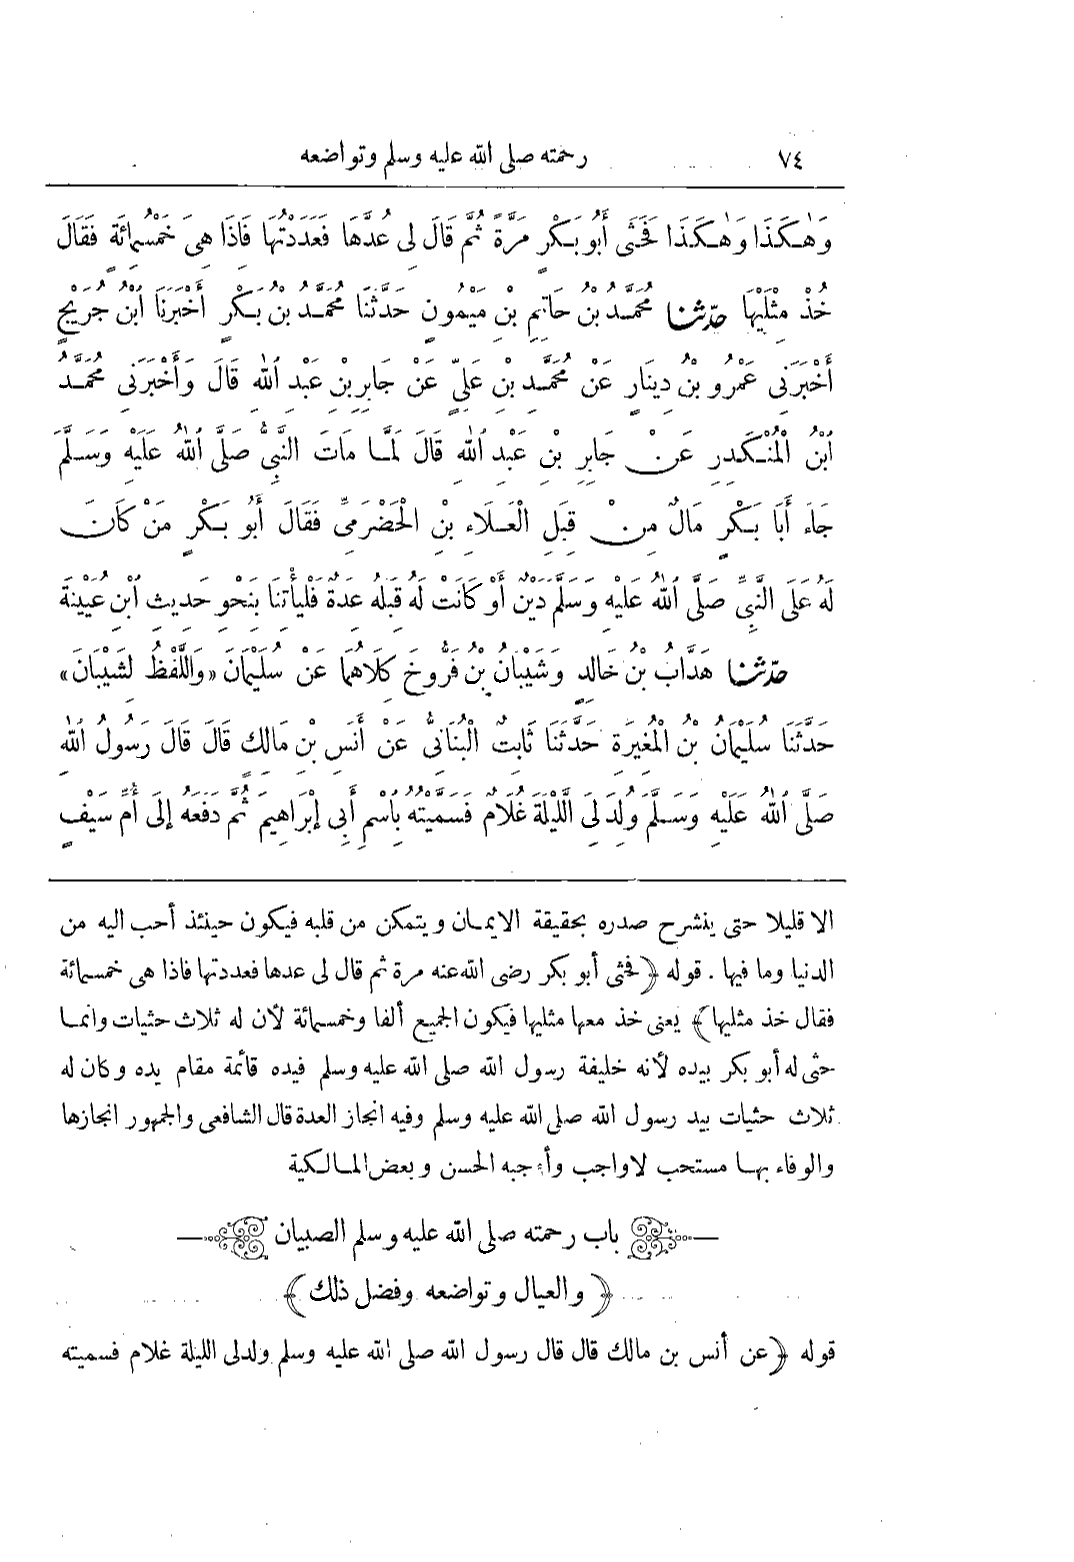 ٧٤ رحمته صلى الله عليه وسلم وتواضعه
وَهٰكَذَا وَهٰكَذَا فَحَثَى أَبُو بَكْرٍ مَرَّةً ثُمَّ قَالَ لِى عُدَّهَا فَعَدَدْتُهَا فَاِذَا هِىَ خَمْسُمِائَةٍ فَقَالَ
خُذْ مِثْلَيْهَا حَدَّثَنَا مُحَمَّدُ بْنُ حَاتِمِ بْنِ مَيْمُونٍ حَدَّثَنَا مُحَمَّدُ بْنُ بَكْرٍ أَخْبَرَنَا ابْنُ جُرَيْجٍ
أَخْبَرَنِى عَمْرُو بْنُ دِينَارٍ عَنْ مُحَمَّدِ بْنِ عَلِيٍّ عَنْ جَابِرِ بْنِ عَبْدِ اللهِ قَالَ وَأَخْبَرَنِى مُحَمَّدُ
ابْنُ الْمُنْكَدِرِ عَنْ جَابِرِ بْنِ عَبْدِ اللهِ قَالَ لَمَّا مَاتَ النَّبِىُّ صَلَّى اللهُ عَلَيْهِ وَسَلَّمَ
جَاءَ أَبَا بَكْرٍ مَالٌ مِنْ قِبَلِ الْعَلَاءِ بْنِ الْحَضْرَمِىِّ فَقَالَ أَبُو بَكْرٍ مَنْ كَانَ
لَهُ عَلَى النَّبِىِّ صَلَّى اللهُ عَلَيْهِ وَسَلَّمَ دَيْنٌ أَوْ كَانَتْ لَهُ قِبَلَهُ عِدَةٌ فَلْيَأْتِنَا بِنَحْوِ حَدِيثِ ابْنِ عُيَيْنَةَ
حَدَّثَنَا هَدَّابُ بْنُ خَالِدٍ وَشَيْبَانُ بْنُ فَرُّوخَ كِلَاهُمَا عَنْ سُلَيْمَانَ «وَاللَّفْظُ لِشَيْبَانَ»
حَدَّثَنَا سُلَيْمَانُ بْنُ الْمُغِيرَةِ حَدَّثَنَا ثَابِتٌ الْبُنَانِىُّ عَنْ أَنَسِ بْنِ مَالِكٍ قَالَ قَالَ رَسُولُ اللهِ
صَلَّى اللهُ عَلَيْهِ وَسَلَّمَ وُلِدَ لِىَ اللَّيْلَةَ غُلَامٌ فَسَمَّيْتُهُ بِاسْمِ أَبِى إِبْرَاهِيمَ ثُمَّ دَفَعَهُ إِلَى أُمِّ سَيْفٍ
الا قليلا حتى ينشرح صدره بحقيقة الايمان ويتمكن من قلبه فيكون حينئذ أحب اليه من
الدنيا وما فيها . قوله ﴿فحثى أبو بكر رضى الله عنه مرة ثم قال لى عدها فعددتها فاذا هى خمسمائة
فقال خذ مثليها﴾ يعنى خذ معها مثليها فيكون الجميع ألفا وخمسمائة لأن له ثلاث حثيات وانما
حثى له أبو بكر بيده لأنه خليفة رسول الله صلى الله عليه وسلم فيده قائمة مقام يده وكان له
ثلاث حثيات بيد رسول الله صلى الله عليه وسلم وفيه انجاز العدة قال الشافعى والجمهور انجازها
والوفاء بها مستحب لاواجب وأوجبه الحسن وبعض المالكية
باب رحمته صلى الله عليه وسلم الصبيان
﴿والعيال وتواضعه وفضل ذلك﴾
قوله ﴿عن أنس بن مالك قال قال رسول الله صلى الله عليه وسلم ولدلى الليلة غلام فسميته